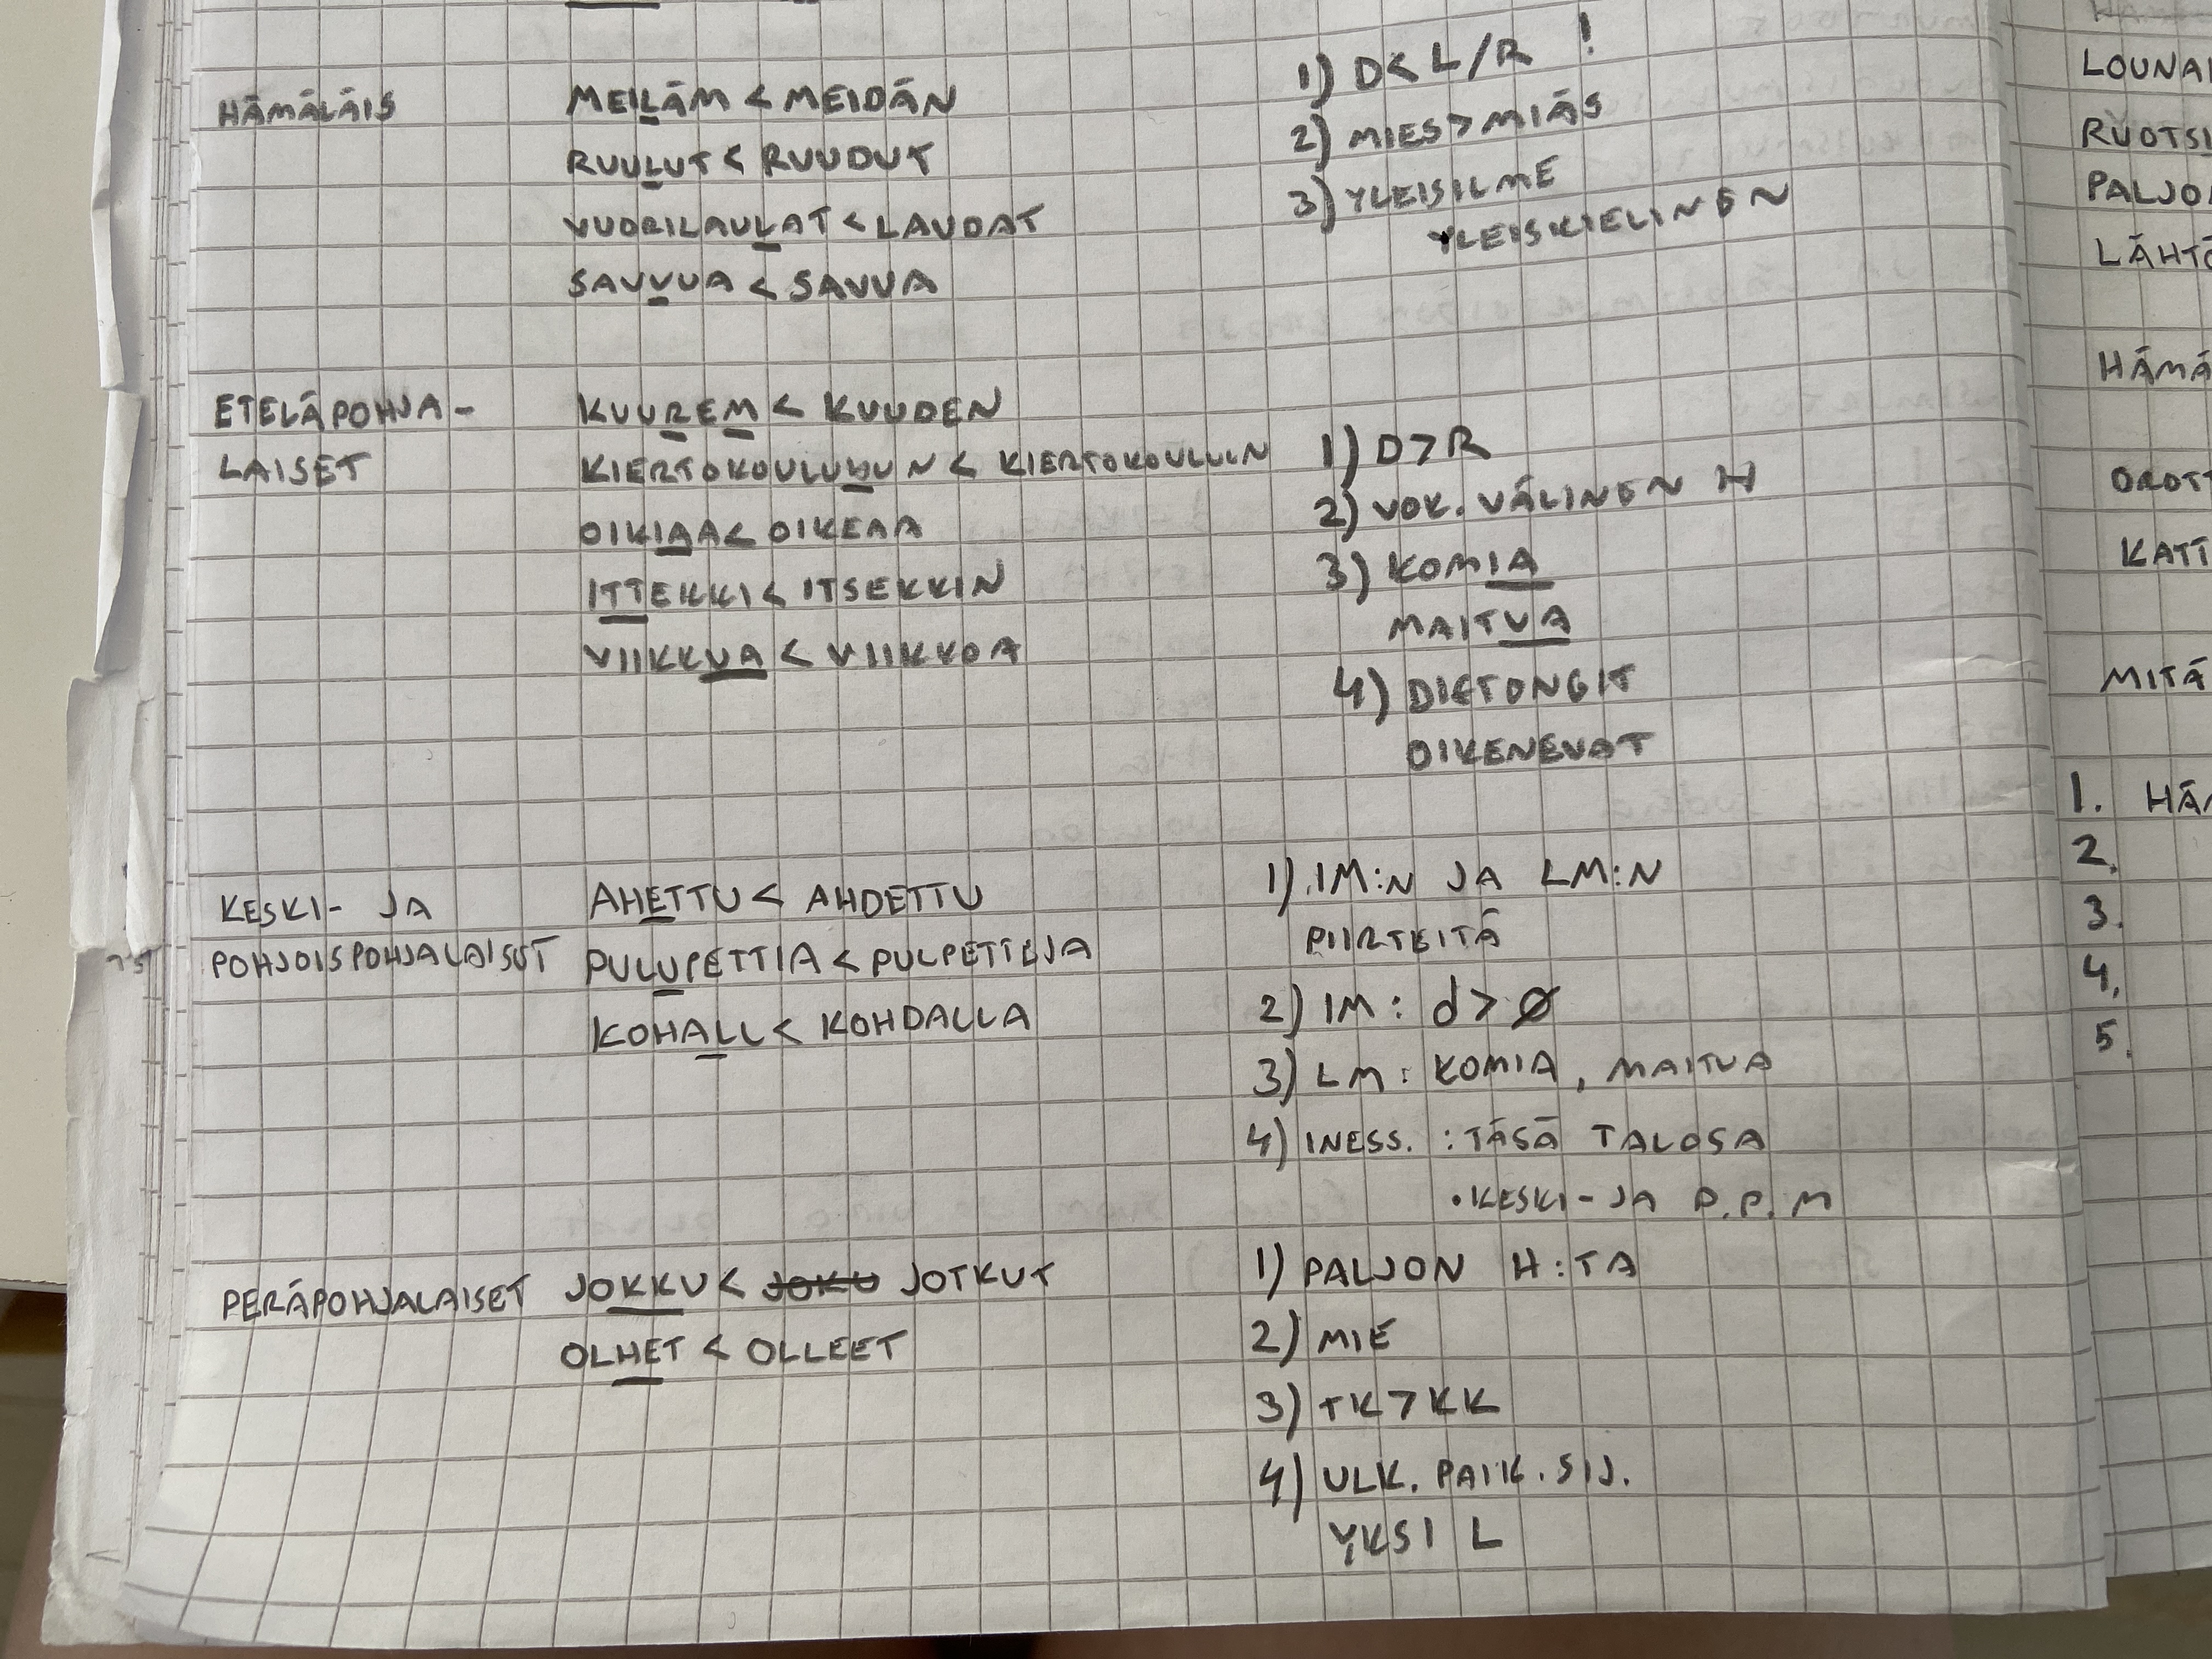 HÄMÄLÄIS
MEILÄM < MEIDÄN
RUULUT < RUUDUT
VUORILAULAT < LAUDAT
SAVVUA < SAVUA
1) D< L/R !
2) MIES > MIÄS
3) YLEISILME
YLEISKIELINEN
ETELÄPOHJA-
LAISET
KUUREM < KUUDEN
KIERTOKOULUHUN < KIERTOKOULUUN
OIKIAA < OIKEAA
ITTEKKI < ITSEKKIN
VIIKKUA < VIIKKOA
1) D > R
2) VOK. VÄLINEN H
3) KOMIA
MAITUA
4) DIFTONGIT
OIKENEVAT
KESKI- JA
POHJOISPOHJALAISET
AHETTU < AHDETTU
PULUPETTIA < PULPETTEJA
KOHALL < KOHDALLA
1) IM:N JA LM:N
PIIRTEITÄ
2) IM: d > Ø
3) LM: KOMIA, MAITUA
4) INESS. : TÄSÄ TALOSA
• KESKI- JA P.P.M
PERÄPOHJALAISET
JOKKU < JOKU JOTKUT
OLHET < OLLEET
1) PALJON H:TA
2) MIE
3) TK > KK
4) ULK. PAIK. SIJ.
YKSI L
LOUNAI
RUOTSI
PALJO
LÄHTÖ
HÄMÄ
OROTT
KATT
MITÄ
1. HÄM
2.
3.
4.
5.